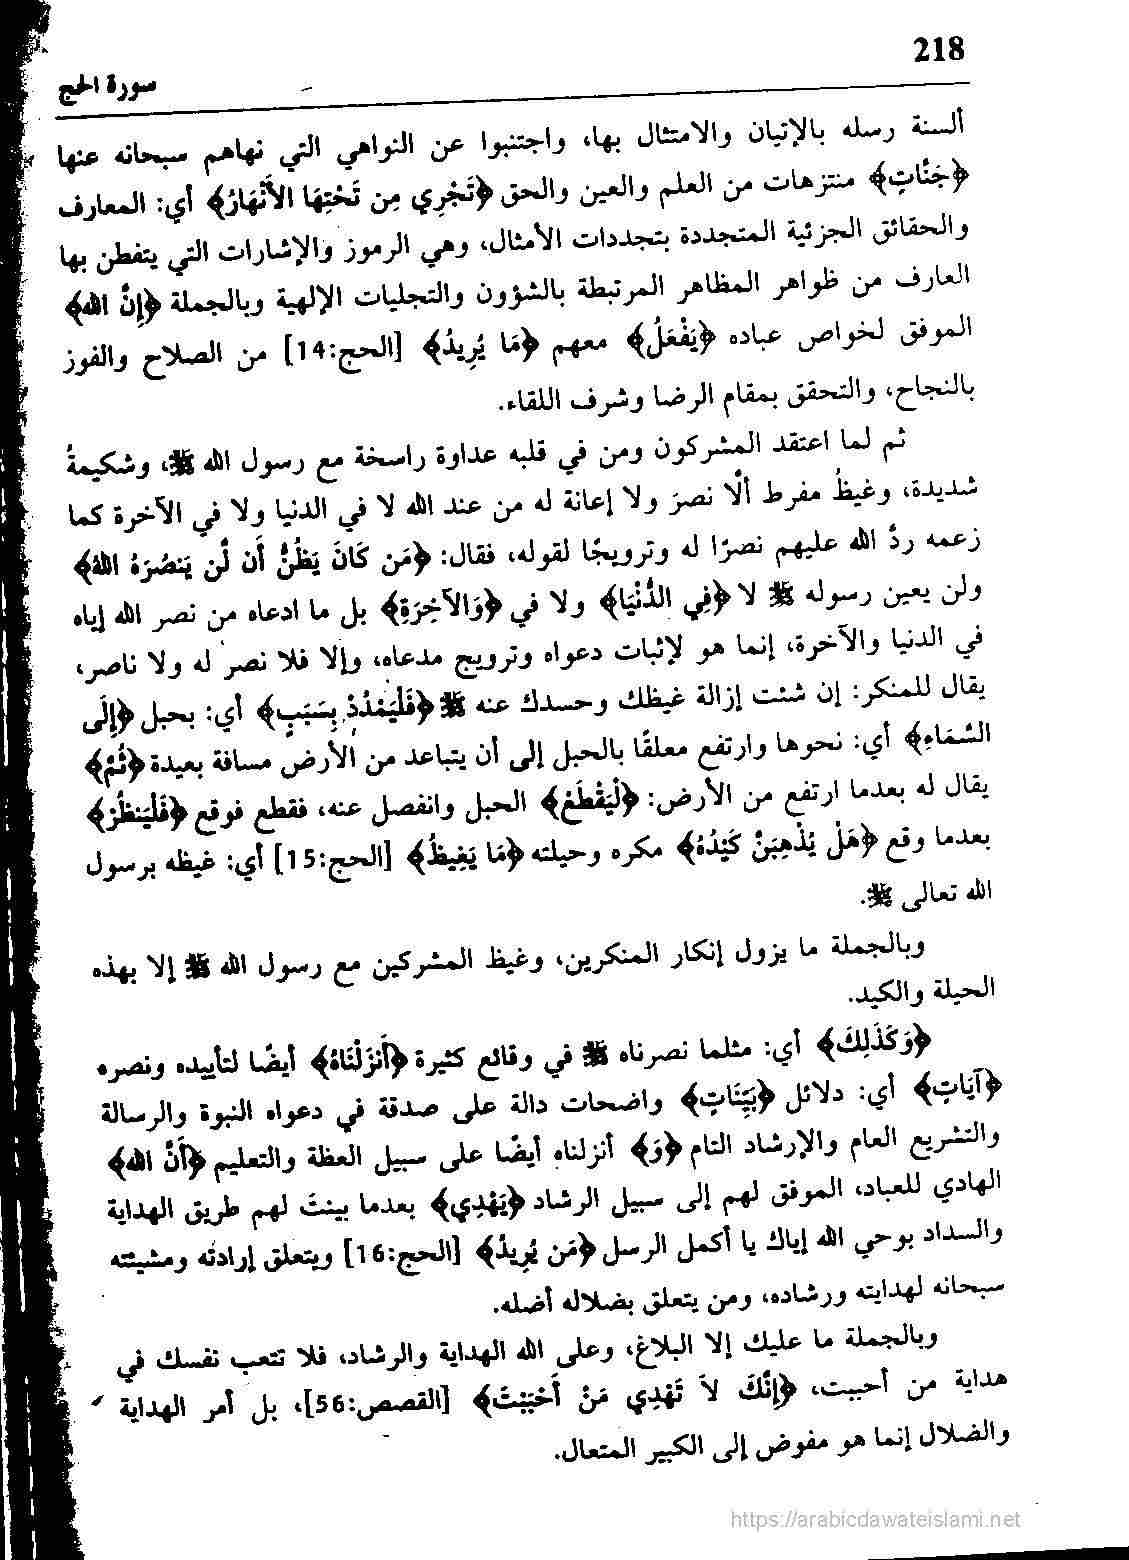 218
سورة الحج
ألسنة رسله بالإتيان والامتثال بها، واجتنبوا عن النواهي التي نهاهم سبحانه عنها
﴿جَنَّاتٍ﴾ منتزهات من العلم والعين والحق ﴿تَجْرِي مِن تَحْتِهَا الأَنْهَارُ﴾ أي: المعارف
والحقائق الجزئية المتجددة بتجددات الأمثال، وهي الرموز والإشارات التي يتفطن بها
العارف من ظواهر المظاهر المرتبطة بالشؤون والتجليات الإلهية وبالجملة ﴿إِنَّ الله﴾
الموفق لخواص عباده ﴿يَفْعَلُ﴾ معهم ﴿مَا يُرِيدُ﴾ [الحج:14] من الصلاح والفوز
بالنجاح، والتحقق بمقام الرضا وشرف اللقاء.
ثم لما اعتقد المشركون ومن في قلبه عداوة راسخة مع رسول الله ﷺ، وشكيمةُ
شديدة، وغيظُ مفرط ألَّا نصرَ ولا إعانة له من عند الله لا في الدنيا ولا في الآخرة كما
زعمه ردَّ الله عليهم نصرًا له وترويجًا لقوله، فقال: ﴿مَن كَانَ يَظُنُّ أَن لَّن يَنصُرَهُ اللهُ﴾
ولن يعين رسوله ﷺ لا ﴿فِي الدُّنْيَا﴾ ولا في ﴿وَالآخِرَةِ﴾ بل ما ادعاه من نصر الله إياه
في الدنيا والآخرة، إنما هو لإثبات دعواه وترويج مدعاه، وإلا فلا نصر له ولا ناصر،
يقال للمنكر: إن شئت إزالة غيظك وحسدك عنه ﷺ ﴿فَلْيَمْدُدْ بِسَبَبٍ﴾ أي: بحبل ﴿إِلَى
السَّمَاءِ﴾ أي: نحوها وارتفع معلقًا بالحبل إلى أن يتباعد من الأرض مسافة بعيدة ﴿ثُمَّ﴾
يقال له بعدما ارتفع من الأرض: ﴿لْيَقْطَعْ﴾ الحبل وانفصل عنه، فقطع فوقع ﴿فَلْيَنظُرْ﴾
بعدما وقع ﴿هَلْ يُذْهِبَنَّ كَيْدُهُ﴾ مكره وحيلته ﴿مَا يَغِيظُ﴾ [الحج:15] أي: غيظه برسول
الله تعالى ﷺ.
وبالجملة ما يزول إنكار المنكرين، وغيظ المشركين مع رسول الله ﷺ إلا بهذه
الحيلة والكيد.
﴿وَكَذَلِكَ﴾ أي: مثلما نصرناه ﷺ في وقائع كثيرة ﴿أَنزَلْنَاهُ﴾ أيضًا لتأييده ونصره
﴿آيَاتٍ﴾ أي: دلائل ﴿بَيِّنَاتٍ﴾ واضحات دالة على صدقة في دعواه النبوة والرسالة
والتشريع العام والإرشاد التام ﴿وَ﴾ أنزلناه أيضًا على سبيل العظة والتعليم ﴿أَنَّ الله﴾
الهادي للعباد، الموفق لهم إلى سبيل الرشاد ﴿يَهْدِي﴾ بعدما بينتَ لهم طريق الهداية
والسداد بوحي الله إياك يا أكمل الرسل ﴿مَن يُرِيدُ﴾ [الحج:16] ويتعلق إرادته ومشيئته
سبحانه لهدايته ورشاده، ومن يتعلق بضلاله أضله.
وبالجملة ما عليك إلا البلاغ، وعلى الله الهداية والرشاد، فلا تتعب نفسك في
هداية من أحببت، ﴿إِنَّكَ لاَ تَهْدِي مَنْ أَحْبَبْتَ﴾ [القصص:56]، بل أمر الهداية
والضلال إنما هو مفوض إلى الكبير المتعال.
https://arabicdawateislami.net